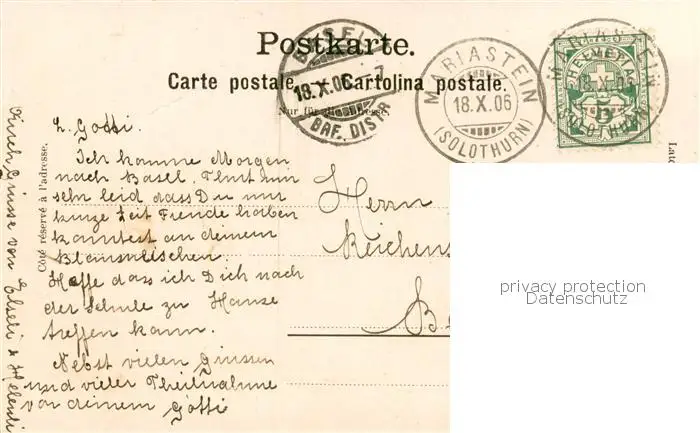 Postkarte.
Carte postale. — Cartolina postale.
Nur für die Adresse.
Côté réservé à l'adresse.
BASEL
18.X.06
BRF. DISTR
MARIASTEIN
18.X.06
(SOLOTHURN)
HELVETIA
5
MARIASTEIN
18.X.06
(SOLOTHURN)
L. Gotti.
Ich komme Morgen
nach Basel. Thut mir
sehr leid dass Du nur
kurze Zeit Freude haben
konntest an deinem
Hoffe dass ich Dich nach
der Schule zu Hause
treffen kann.
Nebst vielen Grüssen
und vieler Theilnahme
von deinem Götti
Auch Grüsse von Elseli &
Herrn
privacy protection
Datenschutz